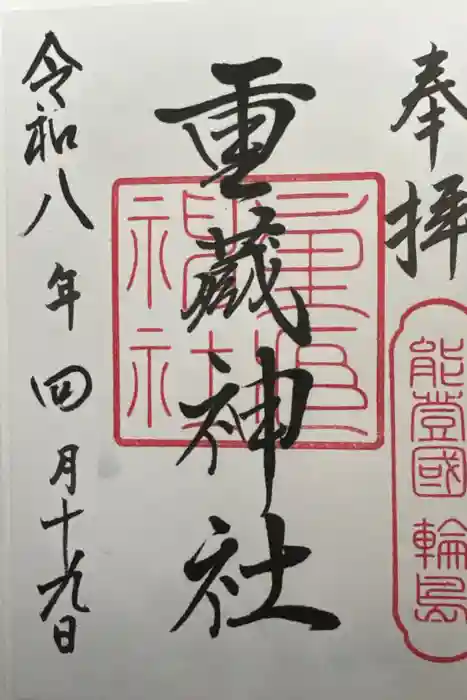 奉拝
能登國 輪島
重蔵神社
重蔵神社
令和八年四月十九日